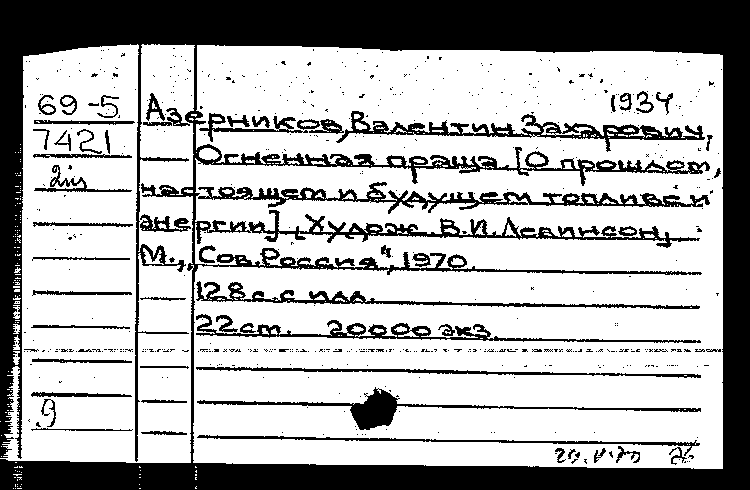 69-5
7421
1934
Азерников, Валентин Захарович,
Огненная праща. [О прошлом,
настоящем и будущем топлива и
энергии]. [Худож. В.И. Левинсон]
М., „Сов. Россия", 1970.
128 с. с илл.
22 см. 20000 экз.
9